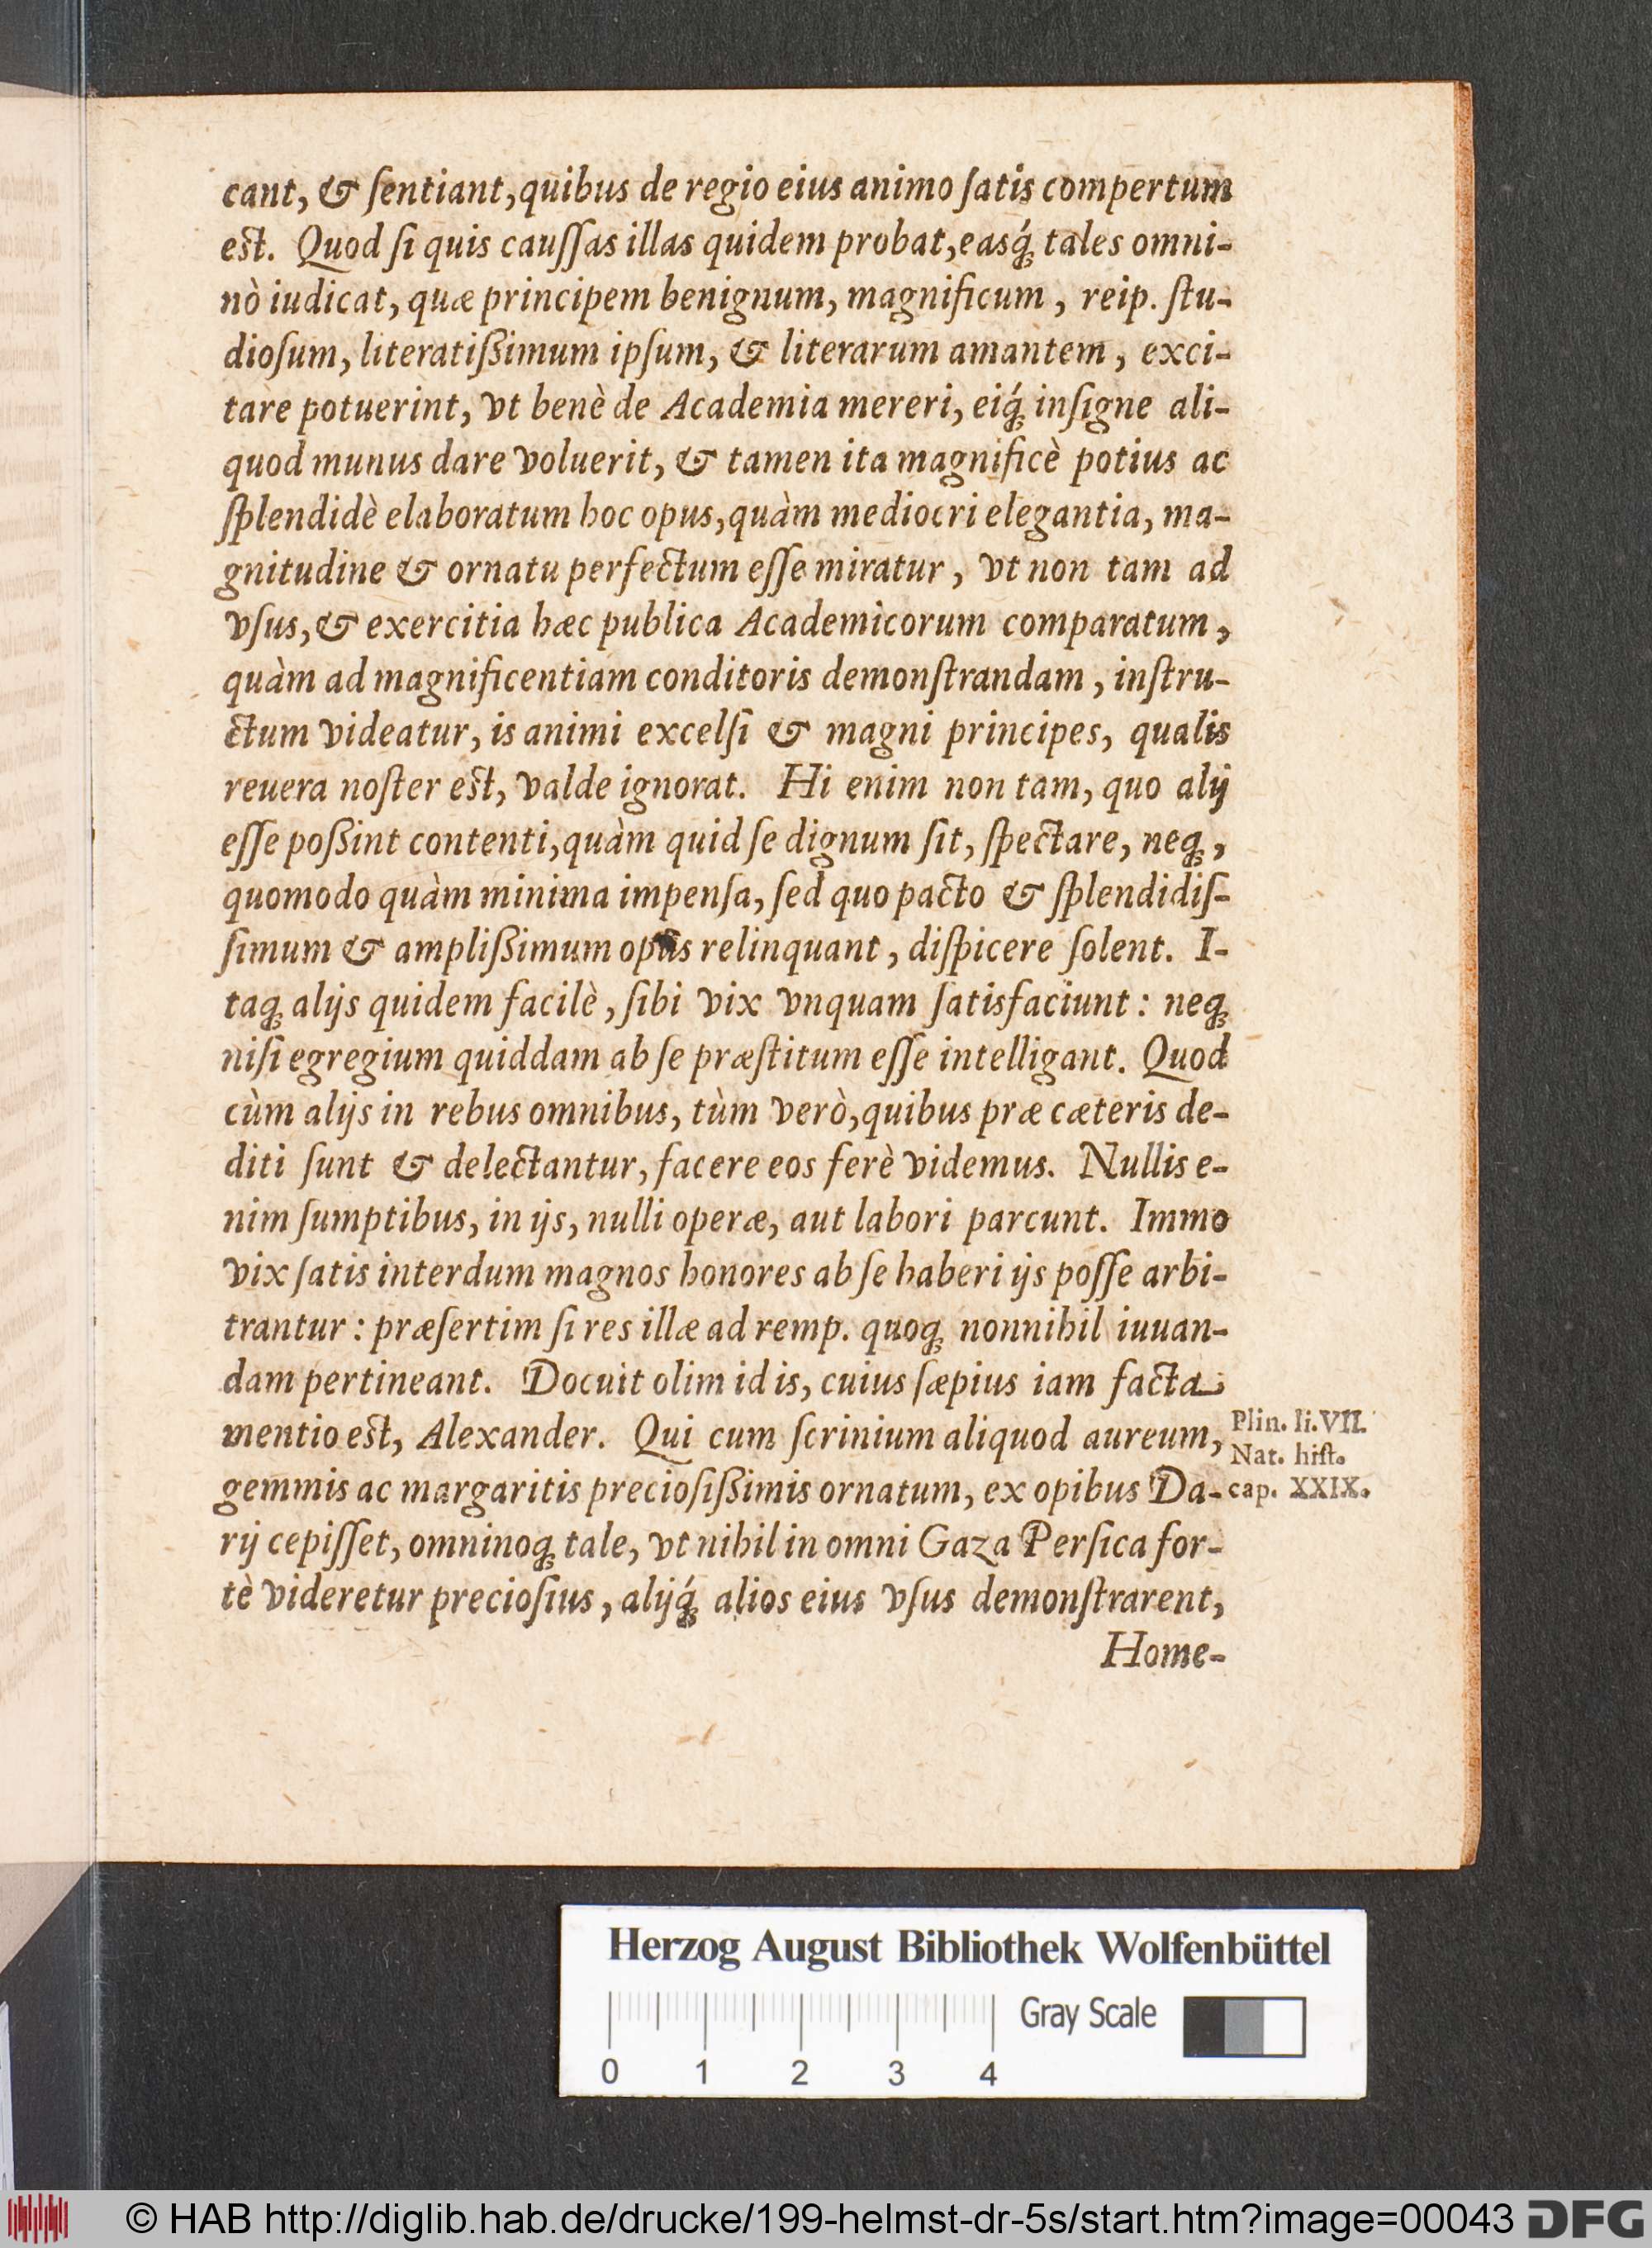 cant, & ſentiant, quibus de regio eius animo ſatis compertum
est. Quod ſi quis cauſſas illas quidem probat, easq́; tales omni-
nò iudicat, quæ principem benignum, magnificum, reip. ſtu-
dioſum, literatißimum ipſum, & literarum amantem, exci-
tare potuerint, vt benè de Academia mereri, eiq́; inſigne ali-
quod munus dare voluerit, & tamen ita magnificè potius ac
ſplendidè elaboratum hoc opus, quàm mediocri elegantia, ma-
gnitudine & ornatu perfectum eſſe miratur, vt non tam ad
vſus, & exercitia hæc publica Academicorum comparatum,
quàm ad magnificentiam conditoris demonſtrandam, inſtru-
ctum videatur, is animi excelſi & magni principes, qualis
reuera noſter est, valde ignorat. Hi enim non tam, quo alij
eſſe poßint contenti, quàm quid ſe dignum ſit, ſpectare, neq;,
quomodo quàm minima impenſa, ſed quo pacto & ſplendidiſ-
ſimum & amplißimum opus relinquant, diſpicere ſolent. I-
taq; alijs quidem facilè, ſibi vix vnquam ſatisfaciunt: neq;
niſi egregium quiddam ab ſe præſtitum eſſe intelligant. Quod
cùm alijs in rebus omnibus, tùm verò, quibus præ cæteris de-
diti ſunt & delectantur, facere eos ferè videmus. Nullis e-
nim ſumptibus, in ijs, nulli operæ, aut labori parcunt. Immo
vix ſatis interdum magnos honores ab ſe haberi ijs poſſe arbi-
trantur: præſertim ſi res illæ ad remp. quoq; nonnihil iuuan-
dam pertineant. Docuit olim id is, cuius ſæpius iam facta
mentio est, Alexander. Qui cum ſcrinium aliquod aureum,
gemmis ac margaritis precioſißimis ornatum, ex opibus Da-
rij cepiſſet, omninoq; tale, vt nihil in omni Gaza Perſica for-
tè videretur precioſius, alijq́; alios eius vſus demonſtrarent,
Home-
Plin. li. VII.
Nat. hiſt.
cap. XXIX.
Herzog August Bibliothek Wolfenbüttel
Gray Scale
0 1 2 3 4
© HAB http://diglib.hab.de/drucke/199-helmst-dr-5s/start.htm?image=00043 DFG